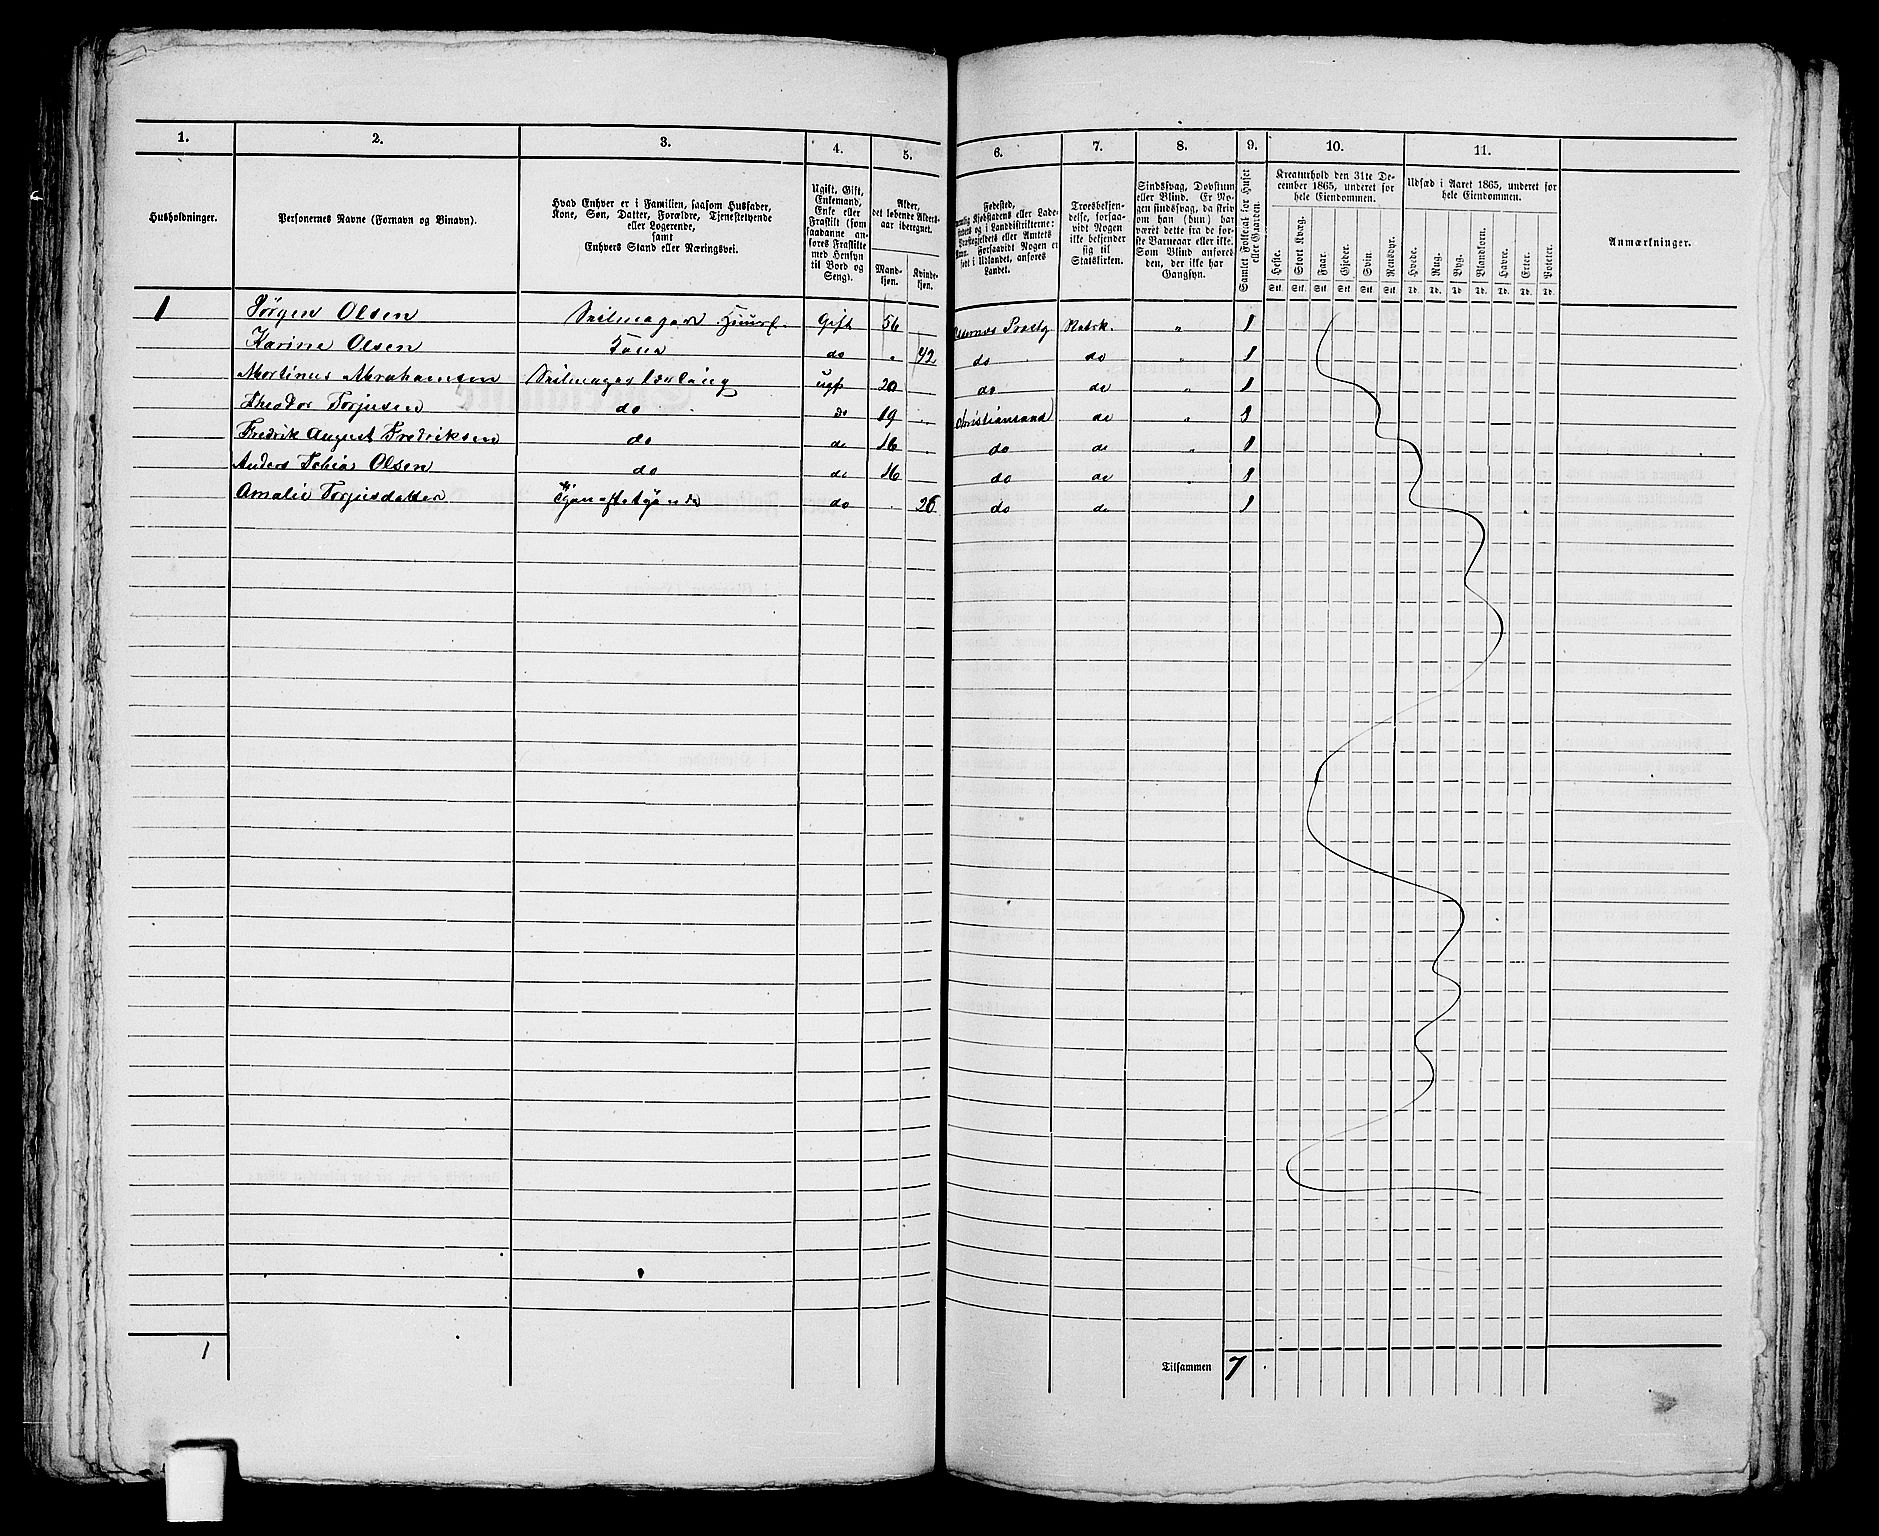 1. 2. 3. 4. 5. 6. 7. 8. 9. 10. 11.
Husholdninger.
Personernes Navne (Fornavn og Binavn).
Hvad Enhver er i Familien, saasom Husfader,
Kone, Søn, Datter, Forældre, Tjenestetyende
eller Logerende,
samt
Enhvers Stand eller Næringsvei.
Ugift, Gift,
Enkemand,
Enke eller
Fraskilt (som
saadanne an-
føres Fraskilte
med Hensyn
til Bord og
Seng).
Alder,
det løbende Alders-
aar iberegnet.
Mand-
kjøn.
Kvinde-
kjøn.
Fødested,
Kjøbstadens eller Lade-
og i Landdistrikterne:
eller Amtets
Navn. Forsaavidt Nogen er
født i Udlandet, anføres
Landet.
Troesbekjen-
delse, forsaa-
vidt Nogen
ikke bekjender
sig til
Statskirken.
Sindssvag, Døvstum
eller Blind. Er No-
gen sindssvag, da skriv
om han (hun) har
været dette fra de før-
ste Barneaar eller ikke.
Som Blind anføres
den, der ikke har
Gangsyn.
Samlet Folketal for Huset
eller Gaarden.
Kreaturhold den 31te De-
cember 1865, underet for
hele Eiendommen.
Heste. Stort Kvæg. Faar. Gjeder. Svin. Rensdyr.
Stk. Stk. Stk. Stk. Stk. Stk.
Udsæd i Aaret 1865, underet for
hele Eiendommen.
Hvede. Rug. Byg. Blandkorn. Havre. Erter. Poteter.
Td. Td. Td. Td. Td. Td. Td.
Anmærkninger.
1 Jørgen Olsen Seilmager Huusf. Gift 56 Prestg Statsk. " 1
Karine Olsen Kone do " 42 do do " 1
Martinus Abrahamsen Seilmager Lærling ugf 20 do do " 1
Theodor Torjusen do do 19 Christiansand do " 1
Fredrik August Fredriksen do do 16 do do " 1
Anders Tobias Olsen do do 16 do do " 1
Amalie Torjusdatter Tjenestetyende do 26 do do 1
1
Tilsammen 7